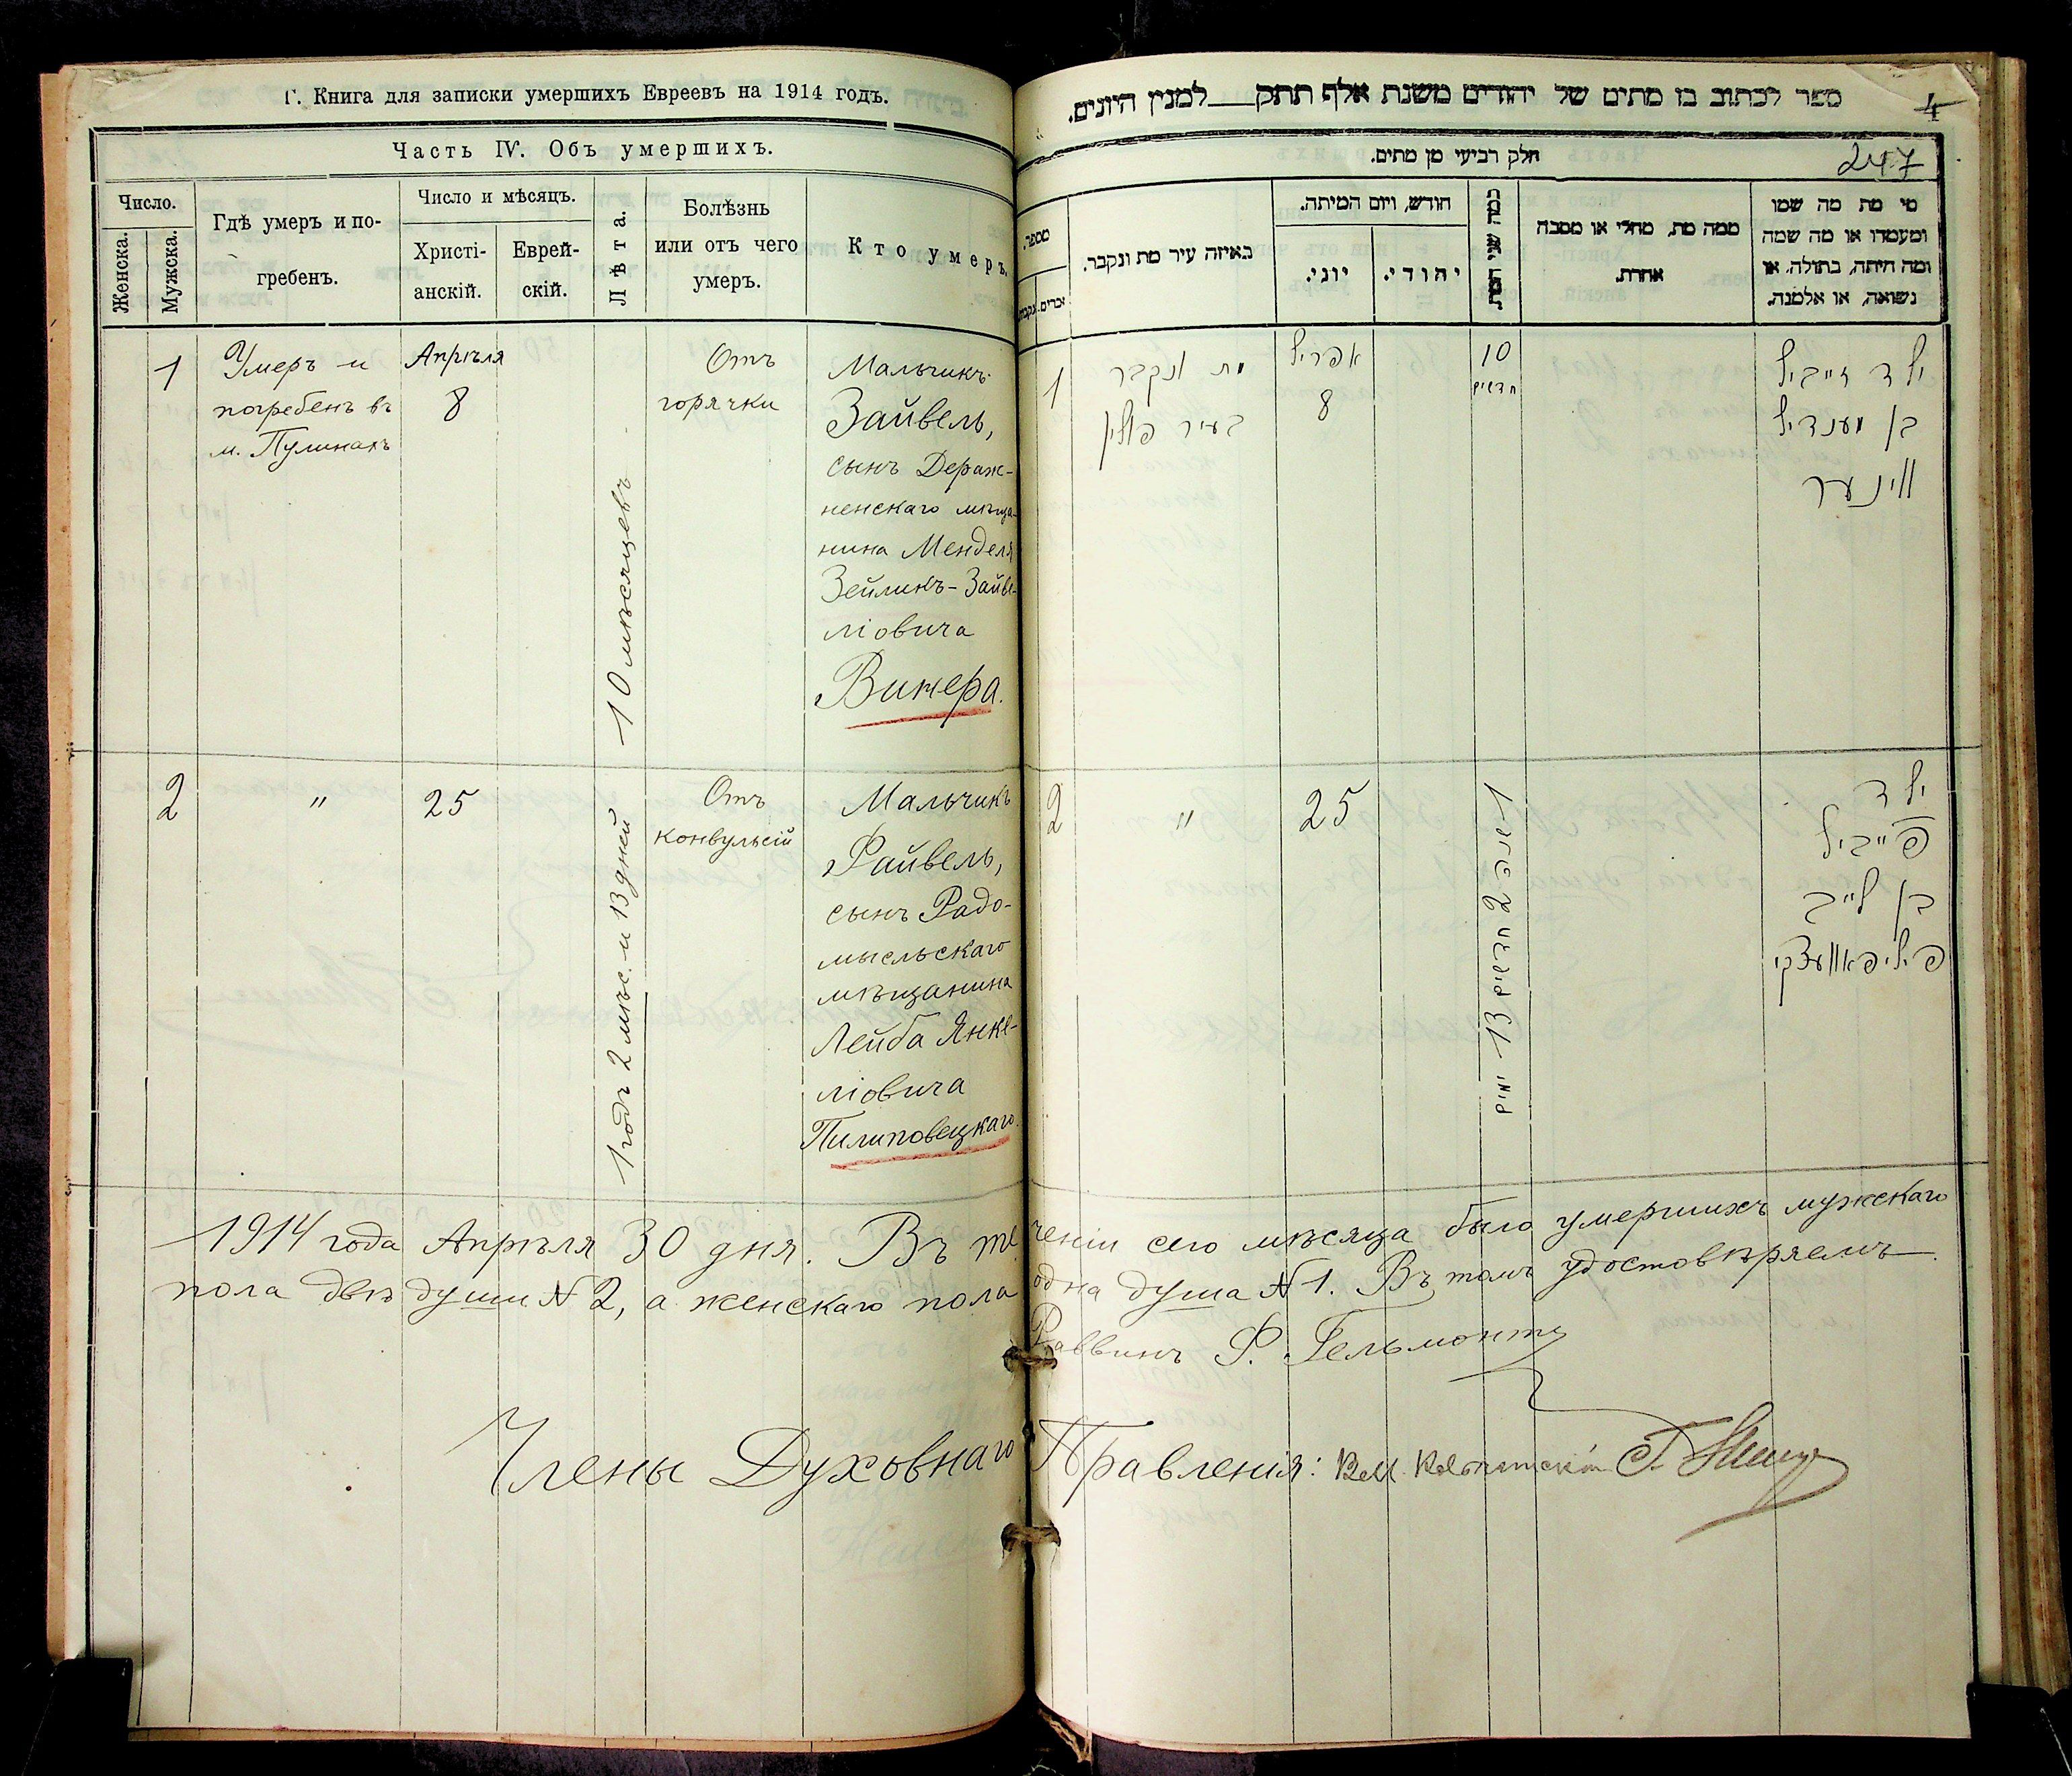 Г. Книга для записки умершихъ Евреевъ на 1914 годъ.
Часть IV. Объ умершихъ.
Число.
Женска.
Мужска.
Гдѣ умеръ и по-
гребенъ.
Число и мѣсяцъ.
Христі-
анскій.
Еврей-
скій.
Лѣта.
Болѣзнь
или отъ чего
умеръ.
Кто умеръ.
1
Умеръ и
погребенъ въ
м. Пулинахъ
Апрѣля
8
10 мѣсяцевъ
Отъ
горячки
Мальчикъ
Зайвель,
сынъ Дераж-
ненскаго мѣща-
нина Менделя
Зейликъ-Зайве-
ліовича
Винера.
2
"
25
1 годъ 2 мѣс. и 13 дней
Отъ
конвульсій
Мальчикъ
Файвель,
сынъ Радо-
мысльскаго
мѣщанина
Лейба Янке-
ліовича
Пилиповецкаго.
ספר לכתוב בו מתים של יהודים משנת אלף תתק למנין היונים.
4
חלק רביעי מן מתים.
247
מספר.
זכרים.
נקבות.
באיזה עיר מת ונקבר.
חודש, ויום המיתה.
יוני.
יהודי.
כמה שני המת
ממה מת, מחלי או מסבה
אחרת.
מי מת מה שמו
ומעמדו או מה שמה
ומה היתה, בתולה, או
נשואה, או אלמנה.
1
מת ונקבר
בעיר פולין
אפריל
8
10
חדשים
ילד זייביל
בן מענדיל
ווינער
2
"
25
1 שנה 2 חדשים 13 ימים
ילד
פייביל
בן לייב
פיליפאוועצקי
1914 года Апрѣля 30 дня. Въ теченіи сего мѣсяца было умершихъ мужскаго
пола двѣ души № 2, а женскаго пола одна душа № 1. Въ томъ удостовѣряемъ.
Раввинъ Ф. Гельмонтъ
Члены Духовнаго Правленія: